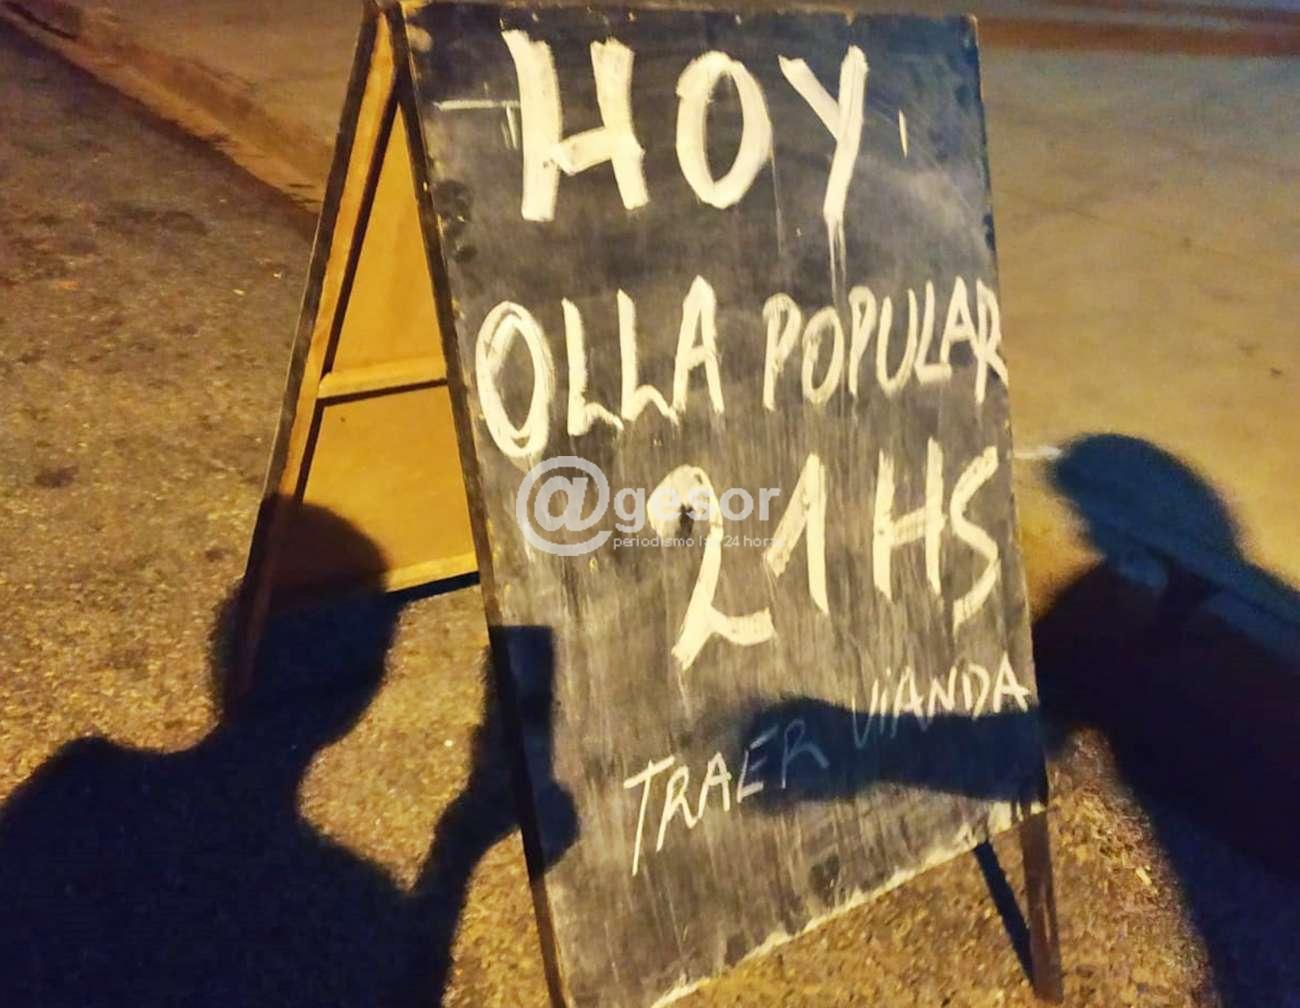 HOY
OLLA POPULAR
@gesor
periodismo las 24 horas
21 HS
TRAER VIANDA